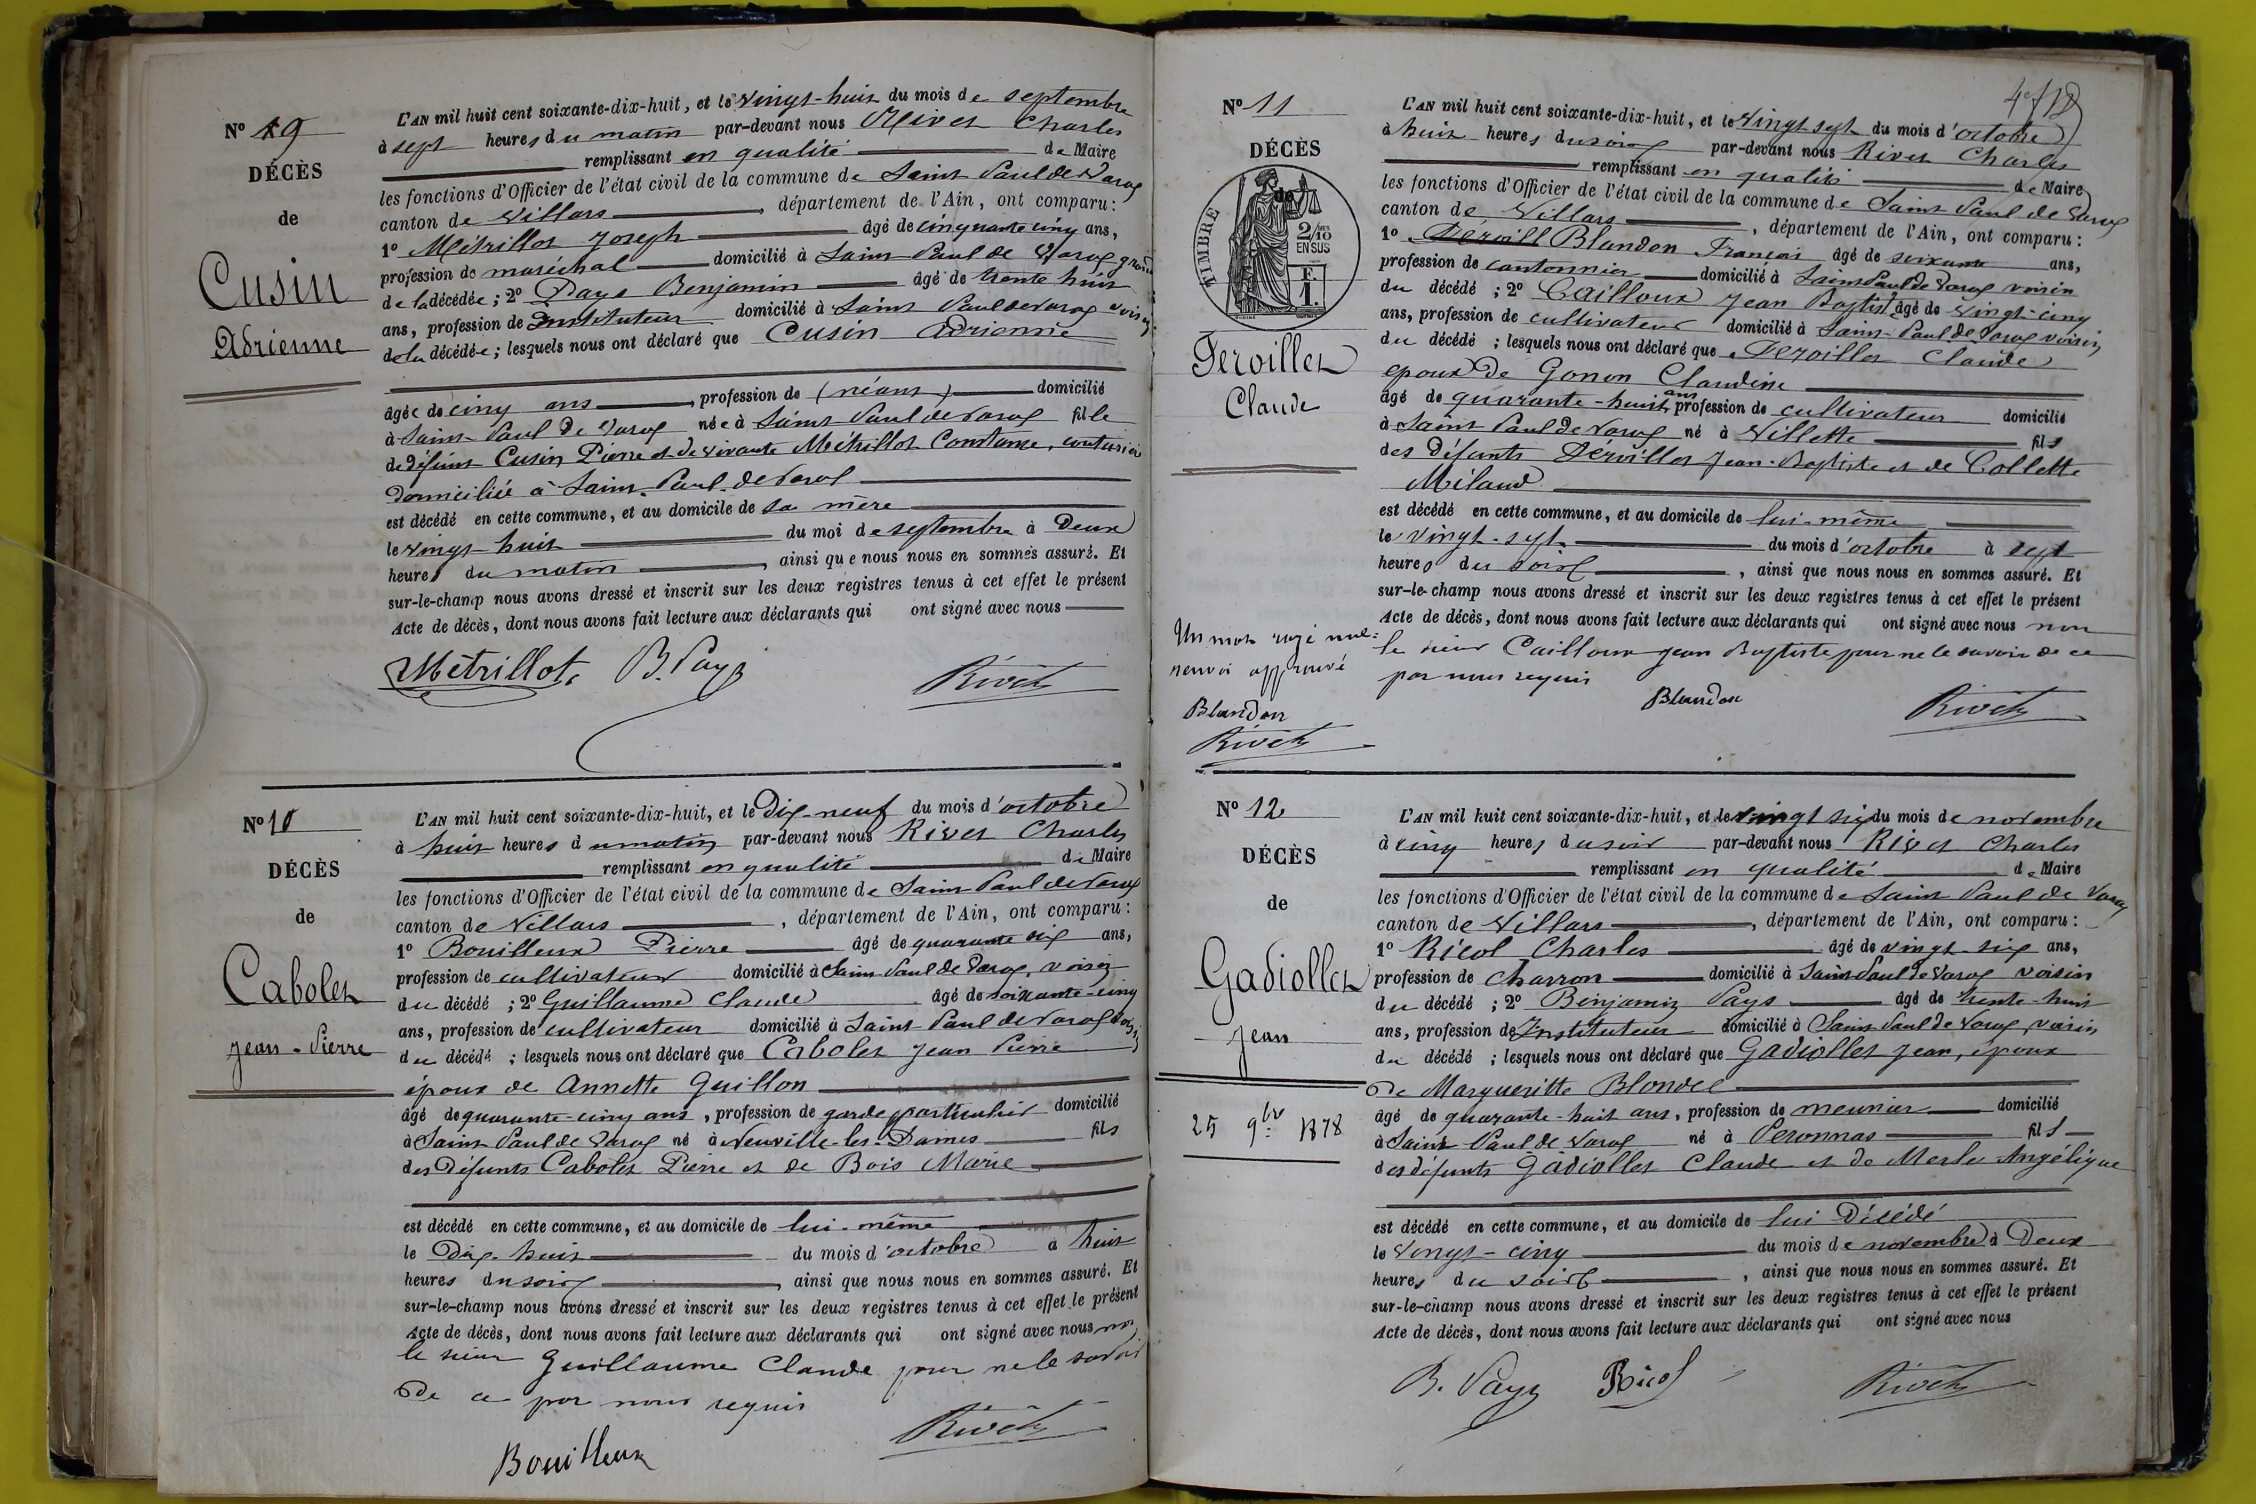 N° 19
DÉCÈS
de
Cusin
Adrienne
L'AN mil huit cent soixante-dix-huit, et le vingt-huit du mois de septembre
à sept heures du matin par-devant nous Rivet Charles
remplissant en qualité de Maire
les fonctions d'Officier de l'état civil de la commune de Saint Paul de Varax
canton de Villars, département de l'Ain, ont comparu:
1° Métrillot Joseph âgé de cinquante cinq ans,
profession de maréchal domicilié à Saint Paul de Varax
de la décédée; 2° Pays Benjamin âgé de trente huit
ans, profession de Instituteur domicilié à Saint Paul de Varax voisin
de la décédée; lesquels nous ont déclaré que Cusin Adrienne
âgée de cinq ans, profession de (néant) domicilié
à Saint-Paul de Varax née à Saint Paul de Varax fille
de défunt Cusin Pierre et de vivante Métrillot Constance, couturière
domiciliée à Saint-Paul-de Varax
est décédé en cette commune, et au domicile de sa mère
le vingt-huit du moi de septembre à Deux
heures du matin, ainsi que nous nous en sommes assuré. Et
sur-le-champ nous avons dressé et inscrit sur les deux registres tenus à cet effet le présent
Acte de décès, dont nous avons fait lecture aux déclarants qui ont signé avec nous
Métrillot B. Pays Rivet
N° 10
DÉCÈS
de
Cabolet
Jean-Pierre
L'AN mil huit cent soixante-dix-huit, et le Dix-neuf du mois d'octobre
à huit heures du matin par-devant nous Rivet Charles
remplissant en qualité de Maire
les fonctions d'Officier de l'état civil de la commune de Saint Paul de Varax
canton de Villars, département de l'Ain, ont comparu:
1° Bouilleux Pierre âgé de quarante six ans,
profession de cultivateur domicilié à Saint Paul de Varax, voisin
du décédé; 2° Guillaume Claude âgé de soixante-cinq
ans, profession de cultivateur domicilié à Saint Paul de Varax voisin
du décédé; lesquels nous ont déclaré que Cabolet Jean Pierre
époux de Annette Guillon
âgé de quarante-cinq ans, profession de garde particulier domicilié
à Saint Paul de Varax né à Neuville-les-Dames fils
des défunts Cabolet Pierre et de Bois Marie
est décédé en cette commune, et au domicile de lui-même
le Dix-huit du mois d'octobre à huit
heures du soir, ainsi que nous nous en sommes assuré. Et
sur-le-champ nous avons dressé et inscrit sur les deux registres tenus à cet effet le présent
Acte de décès, dont nous avons fait lecture aux déclarants qui ont signé avec nous non
le sieur Guillaume Claude pour ne le savoir
De ce par nous requis
Bouilleux Rivet
N° 11
DÉCÈS
de
TIMBRE
2/10
EN SUS
F.
1.
Feroillet
Claude
L'AN mil huit cent soixante-dix-huit, et le vingt sept du mois d'octobre
à huit heures du soir par-devant nous Rivet Charles
remplissant en qualité de Maire
les fonctions d'Officier de l'état civil de la commune de Saint Paul de Varax
canton de Villars, département de l'Ain, ont comparu:
1° Feroill Blandon Francois âgé de soixante ans,
profession de cantonnier domicilié à Saint Paul de Varax voisin
du décédé; 2° Cailloux Jean Baptiste âgé de vingt-cinq
ans, profession de cultivateur domicilié à Saint-Paul de Varax voisin
du décédé; lesquels nous ont déclaré que Feroillet Claude
epoux de Gonon Claudine
âgé de quarante-huit ans profession de cultivateur domicilié
à Saint Paul de Varax né à Villette fils
des défunts Feroillet Jean-Baptiste et de Collette
Miland
est décédé en cette commune, et au domicile de lui-même
le vingt-sept du mois d'octobre à sept
heures du soir, ainsi que nous nous en sommes assuré. Et
sur-le-champ nous avons dressé et inscrit sur les deux registres tenus à cet effet le présent
Acte de décès, dont nous avons fait lecture aux déclarants qui ont signé avec nous non
le sieur Cailloux Jean Baptiste pour ne le savoir de ce
par nous requis
Blandon Rivet
Un mot rayé nul
renvoi approuvé
Blandon
Rivet
N° 12
DÉCÈS
de
Gadiollet
Jean
25 9bre 1878
L'AN mil huit cent soixante-dix-huit, et le vingt six du mois de novembre
à cinq heures du soir par-devant nous Rivet Charles
remplissant en qualité de Maire
les fonctions d'Officier de l'état civil de la commune de Saint Paul de Varax
canton de Villars, département de l'Ain, ont comparu:
1° Ricol Charles âgé de vingt-six ans,
profession de charron domicilié à Saint Paul de Varax voisin
du décédé; 2° Benjamin Pays âgé de trente-huit
ans, profession de Instituteur domicilié à Saint Paul de Varax voisin
du décédé; lesquels nous ont déclaré que Gadiollet Jean, époux
de Margueritte Blondel
âgé de quarante-huit ans, profession de meunier domicilié
à Saint Paul de Varax né à Peronnas fils
des défunts Gadiollet Claude et de Merle Angélique
est décédé en cette commune, et au domicile de lui Décédé
le vingt-cinq du mois de novembre à Deux
heures du soir, ainsi que nous nous en sommes assuré. Et
sur-le-champ nous avons dressé et inscrit sur les deux registres tenus à cet effet le présent
Acte de décès, dont nous avons fait lecture aux déclarants qui ont signé avec nous
B. Pays Ricol Rivet